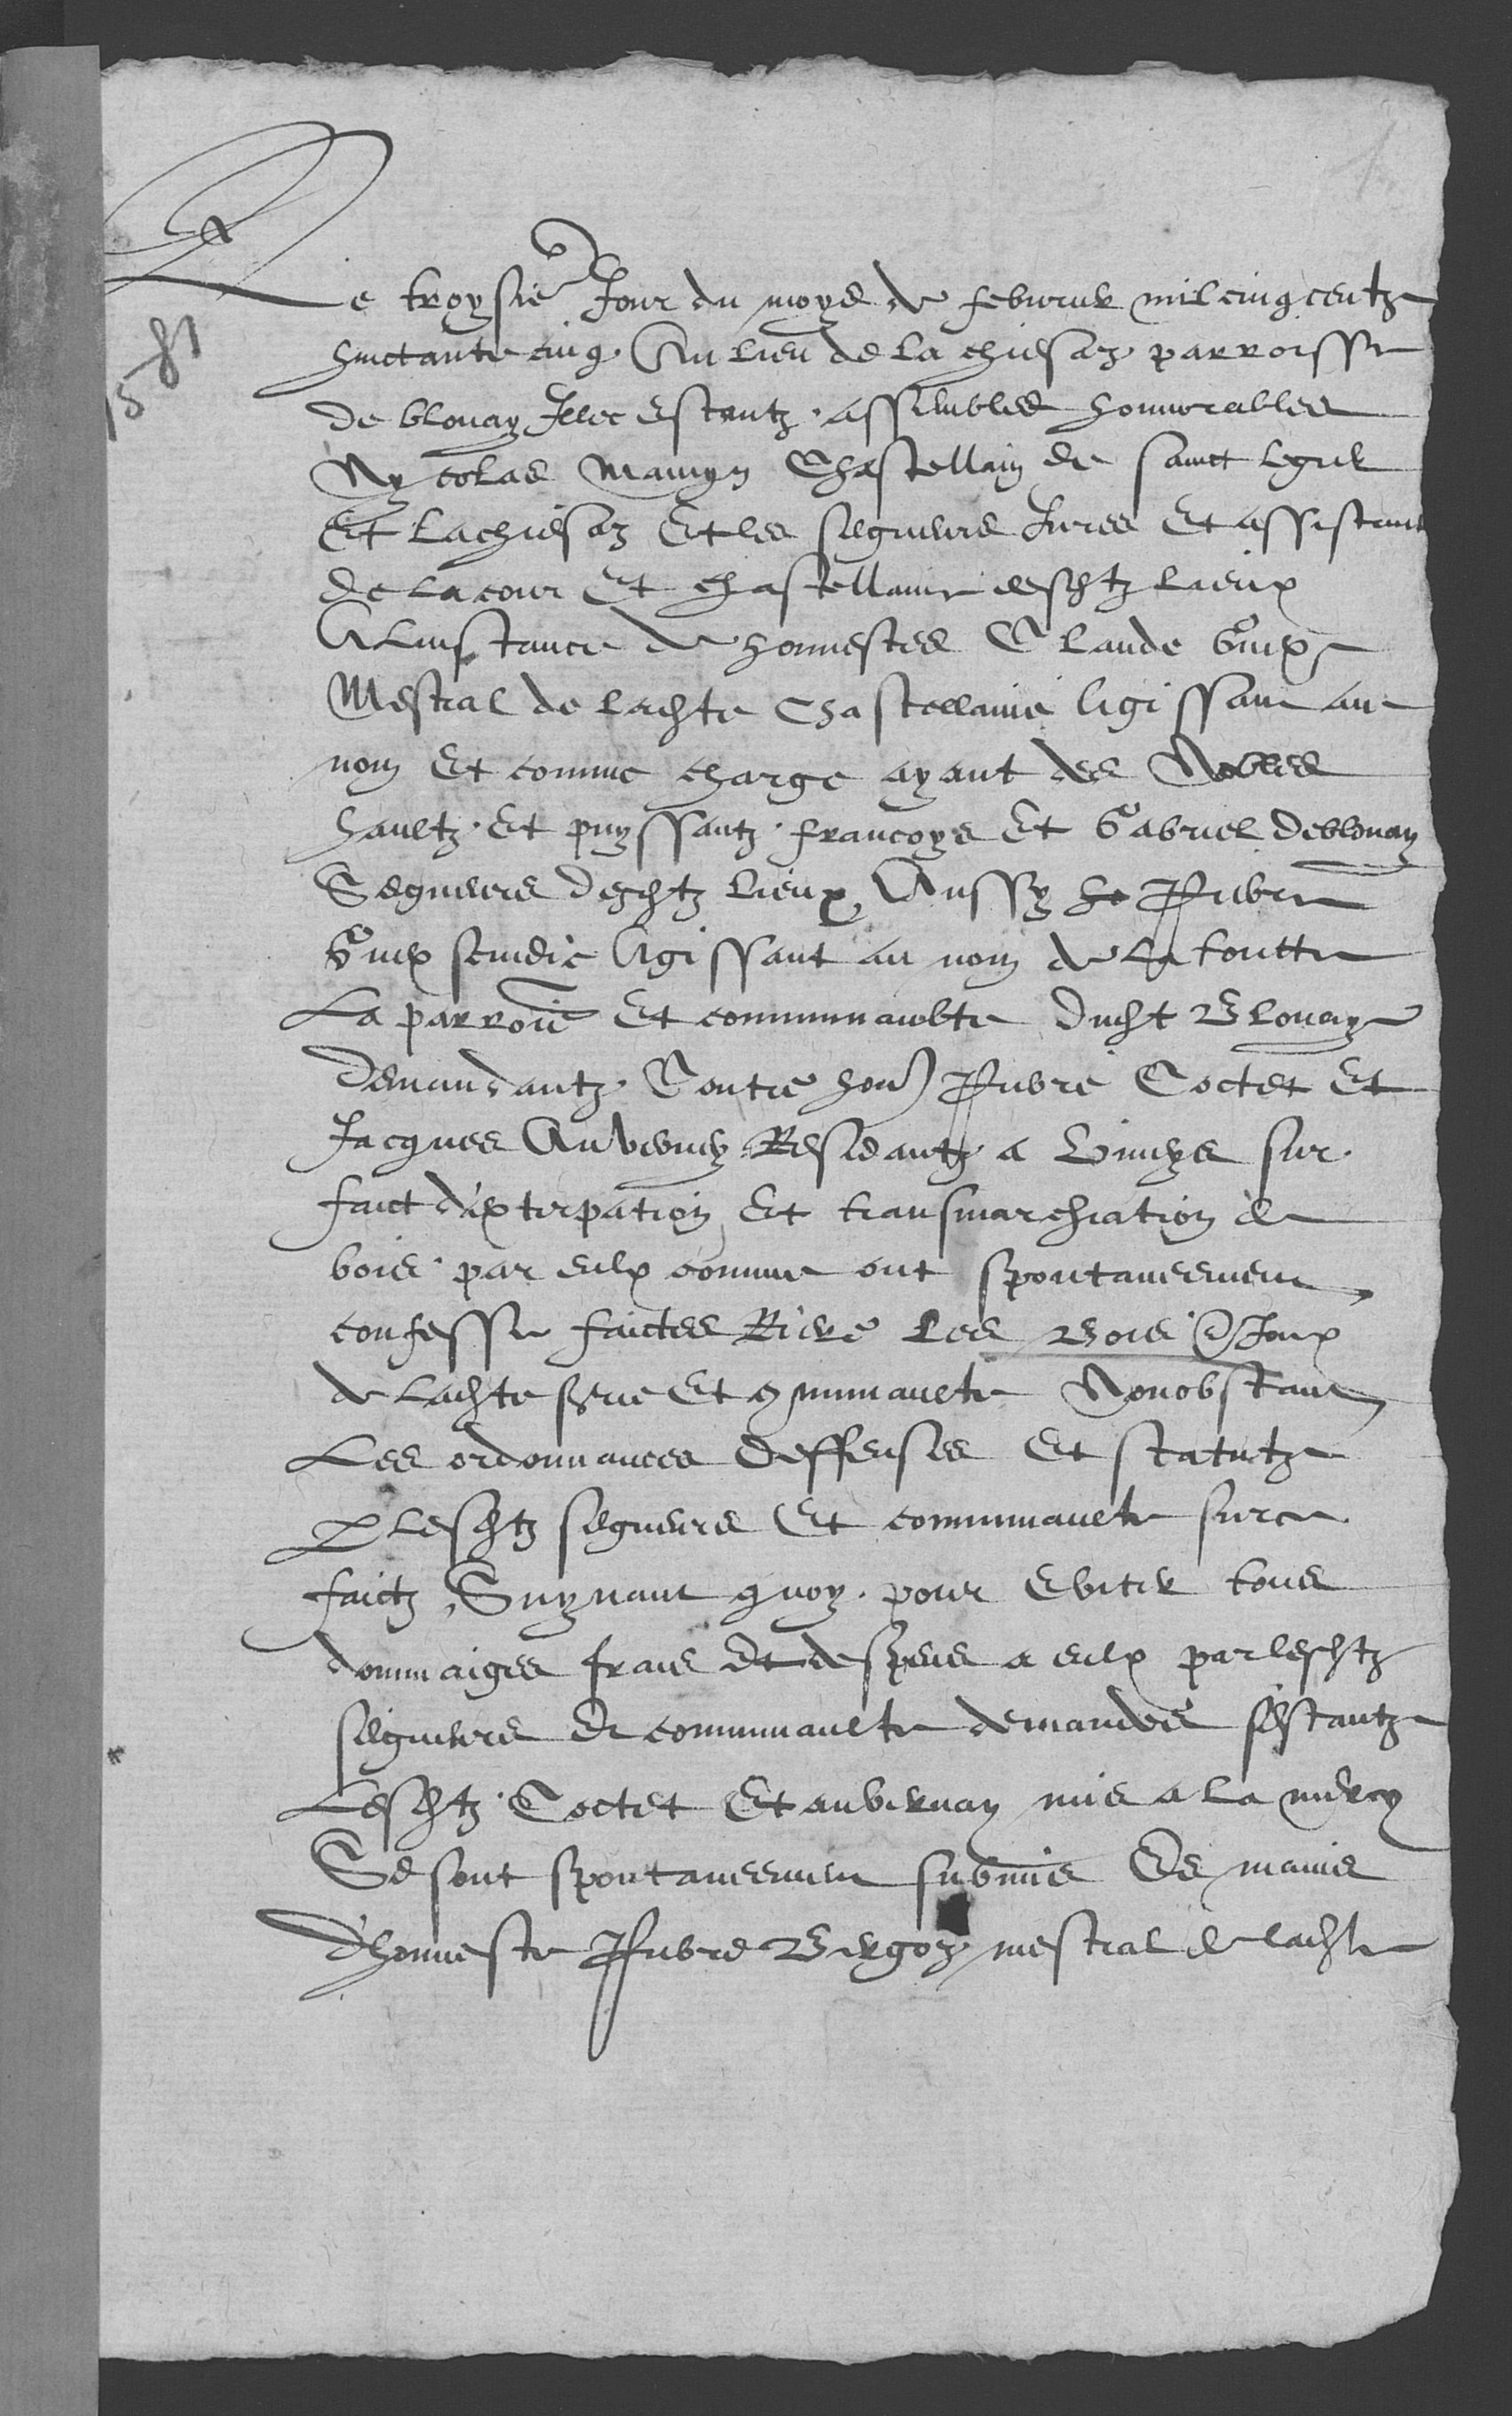 1
Le troysie Jour du moys de febvrier mil cinq centz
1581
huictante cinq. Au lieu de la chiesaz parroisse
de blonay Illec estantz assembles honnorables
Nycolas Mamyn Chastellain de sainct legier
Et lachiesaz Et les seigneurs Jures Et assistant
de la cour Et chastellanie desdtz lieux
A linstance de honnestes Claude
Mestral de ladte Chastellanie Agissant au
nom Et comme charge ayant des Nobles
haultz Et puyssantz francoys Et Gabriel de blonay
Seigneurs desdtz lieux Aussy ho Pierre
scindic Agissant au nom de toutte
La parroie Et communaulte dudt Blonay
demandantz Contre hon Pierre Coctet Et
Jacques Auberney Residantz a sur
faict dextirpation Et transmarchation de
bois par eulx comme ont spontaneement
confesse faictes Riere les Bois Joux
de ladte srie Et communaulte Nonobstant
Les ordonnances deffenses Et statutz
P lesdtz seigneurs Et communaulte surce
faictz, Suyvant quoy pour Eviter tous
dommaiges frais Et despens a eulx par lesdtz
seigneurs Et communaulte demandes sestantz
Lesdtz Coctet Et aubernay mis a la mercy
Se sont spontaneement submis Es mains
dhonneste Pierre mestral de ladte